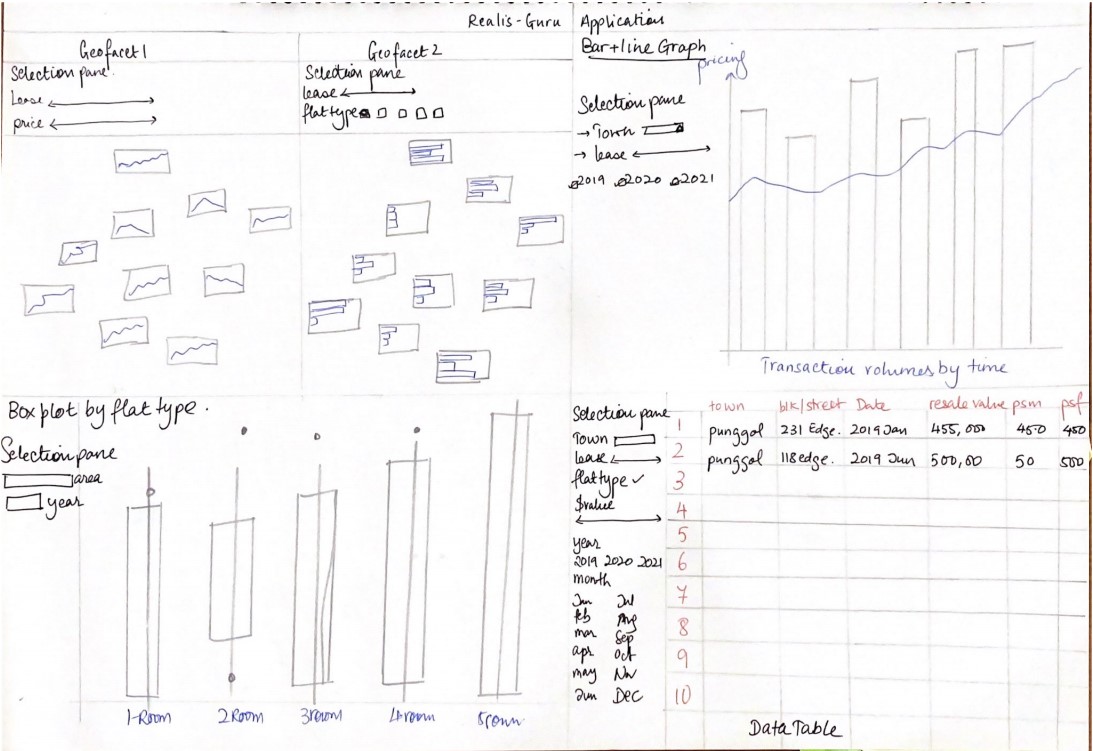 Realis-Guru Application
Geofacet 1
Selection pane.
Lease
price
Geofacet 2
Selection pane
lease
flat type
Bar+line Graph
pricing
Selection pane
→ Town
→ lease
2019 2020 2021
Transaction volumes by time
Box plot by flat type.
Selection pane
area
year
1-Room 2 Room 3 room 4 room
Selection pane
Town
lease
flat type ✓
$value
year
2019 2020 2021
month
Jan Jul
feb Aug
mar Sep
apr Oct
may Nov
Jun Dec
town blk/street Date resale value psm psf
1 punggol 231 Edge. 2019 Jan 455,000 450 450
2 punggol 118 edge. 2019 Jun 500,00 50 500
3
4
5
6
7
8
9
10
Data Table